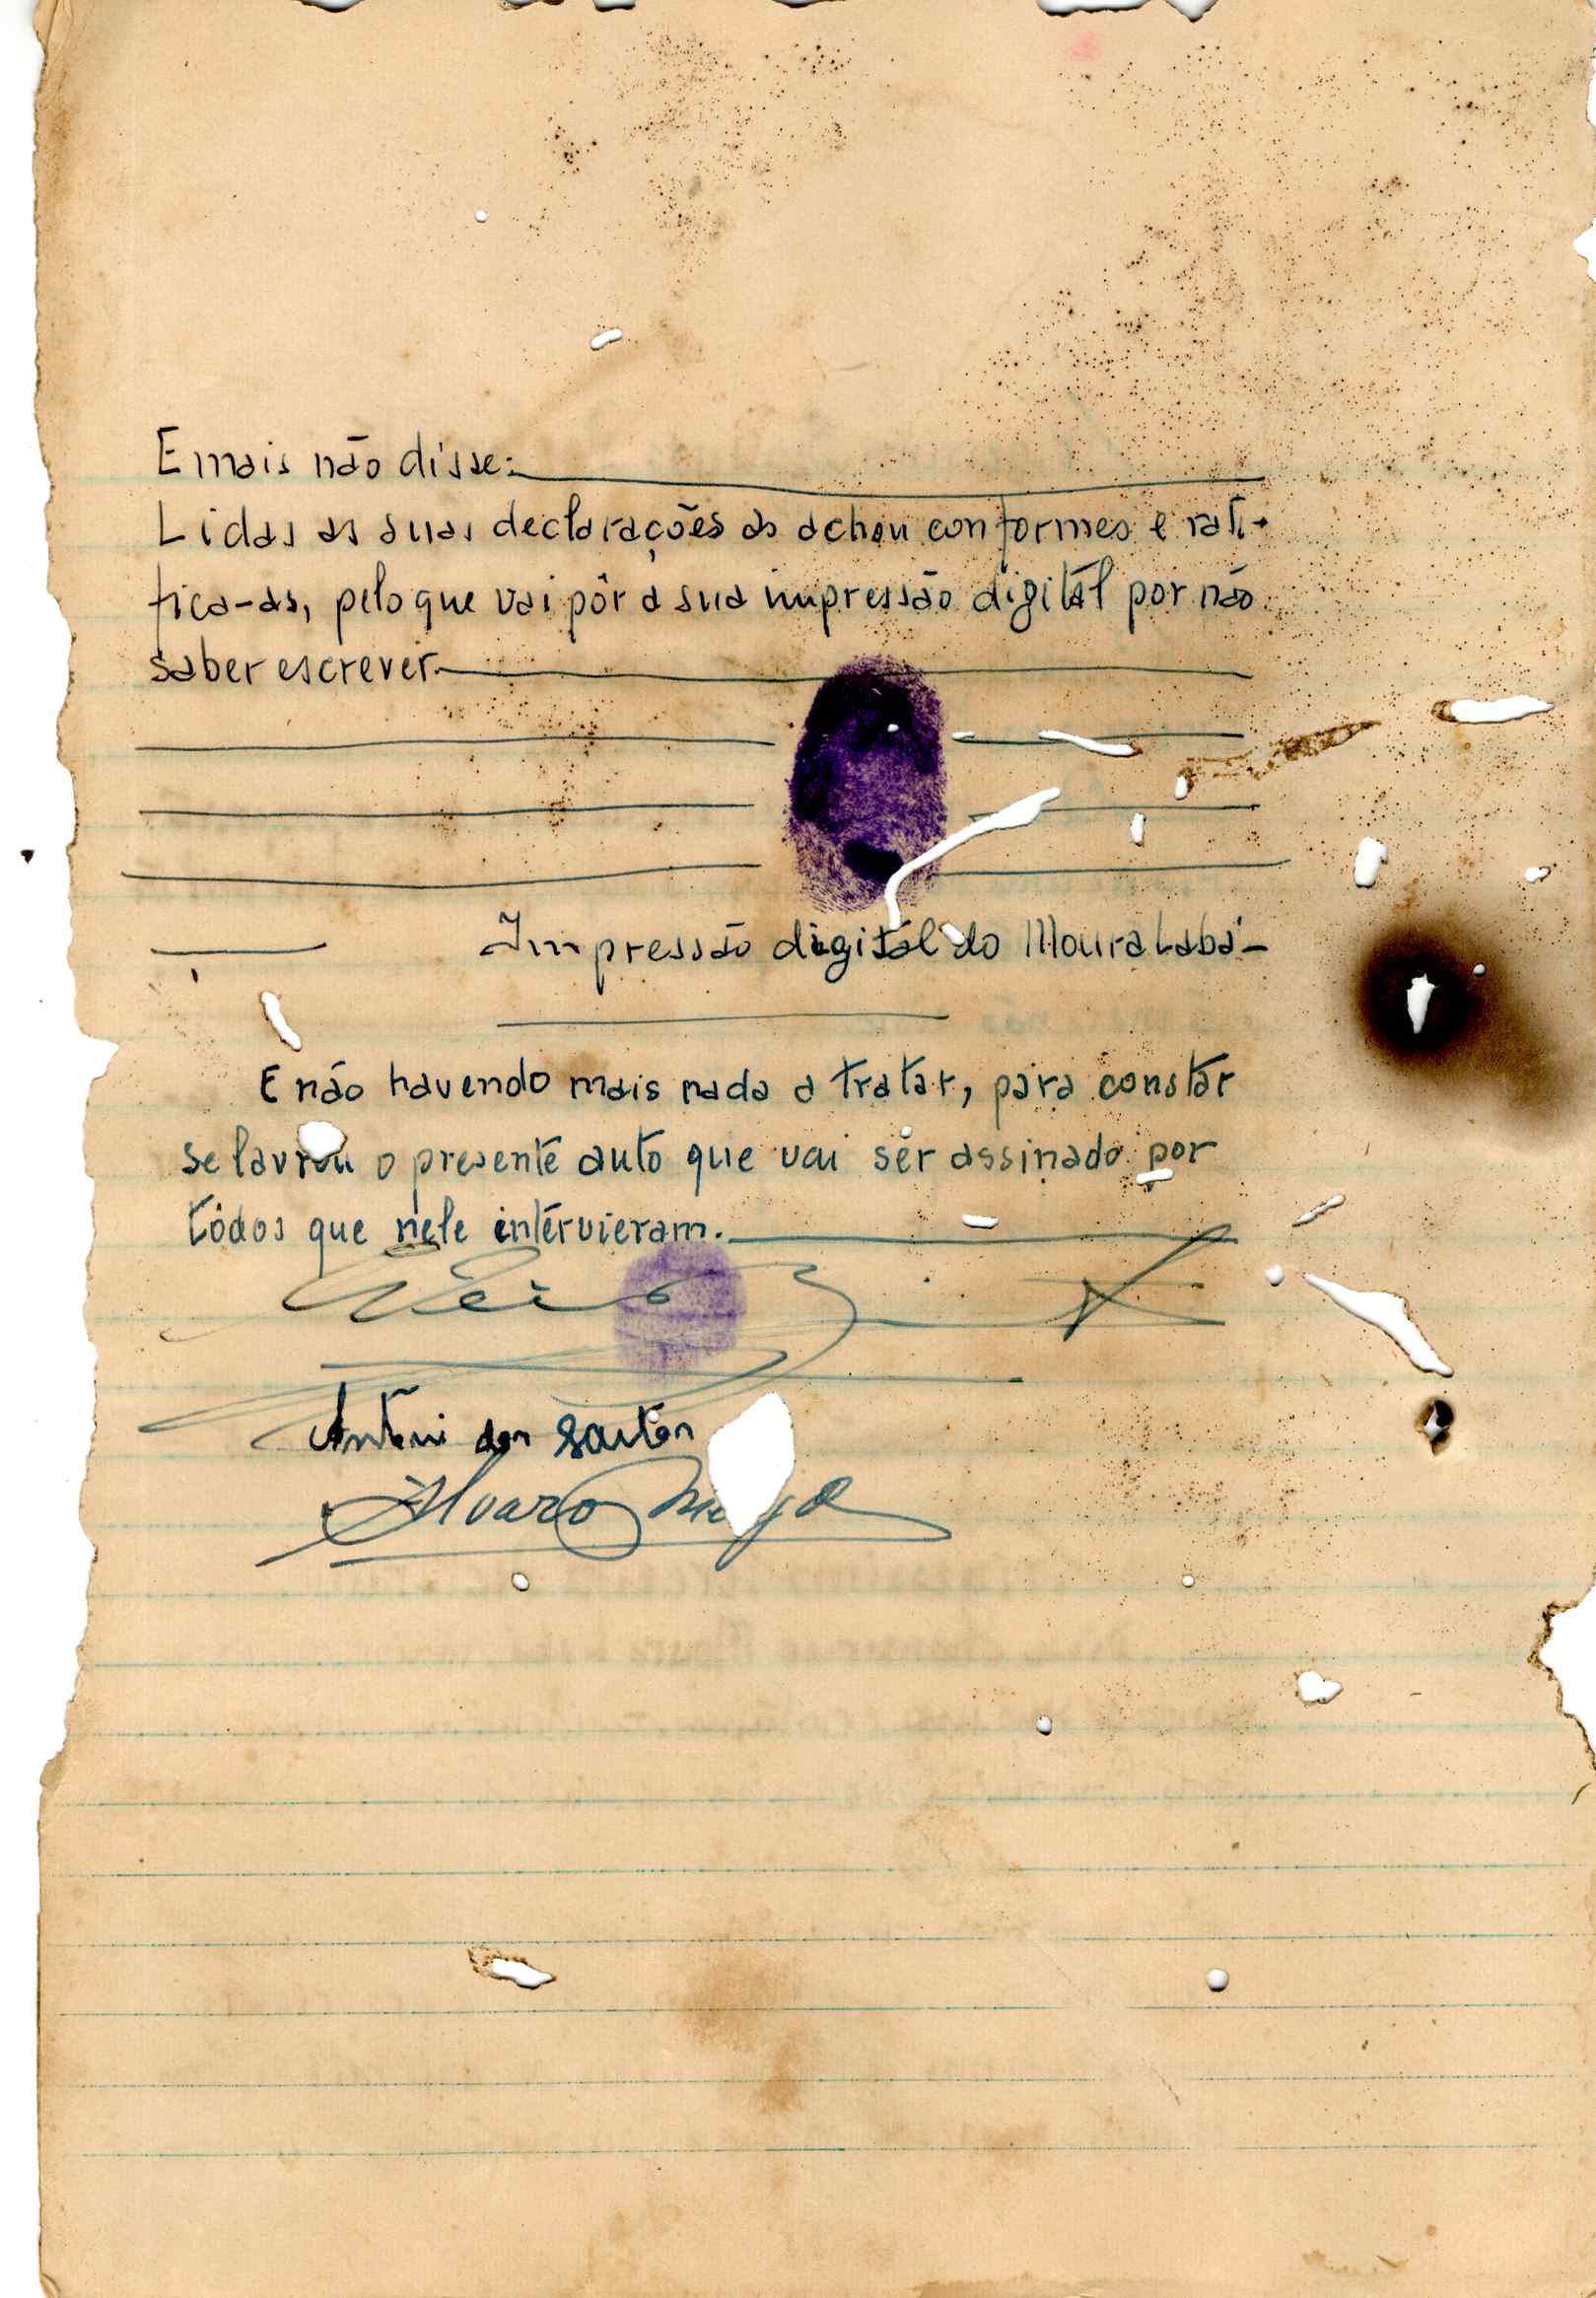 E mais não disse:
Lidas as suas declarações as achou conformes e rati-
fica-as, pelo que vai pôr a sua impressão digitál por não
saber escrever.
Impressão digitál do Moura Labá-
E não havendo mais nada a tratar, para constár
se lavrou o presente auto que vai ser assinado por
tôdos que nele intérvieram.
António dos Santos
Alvaro